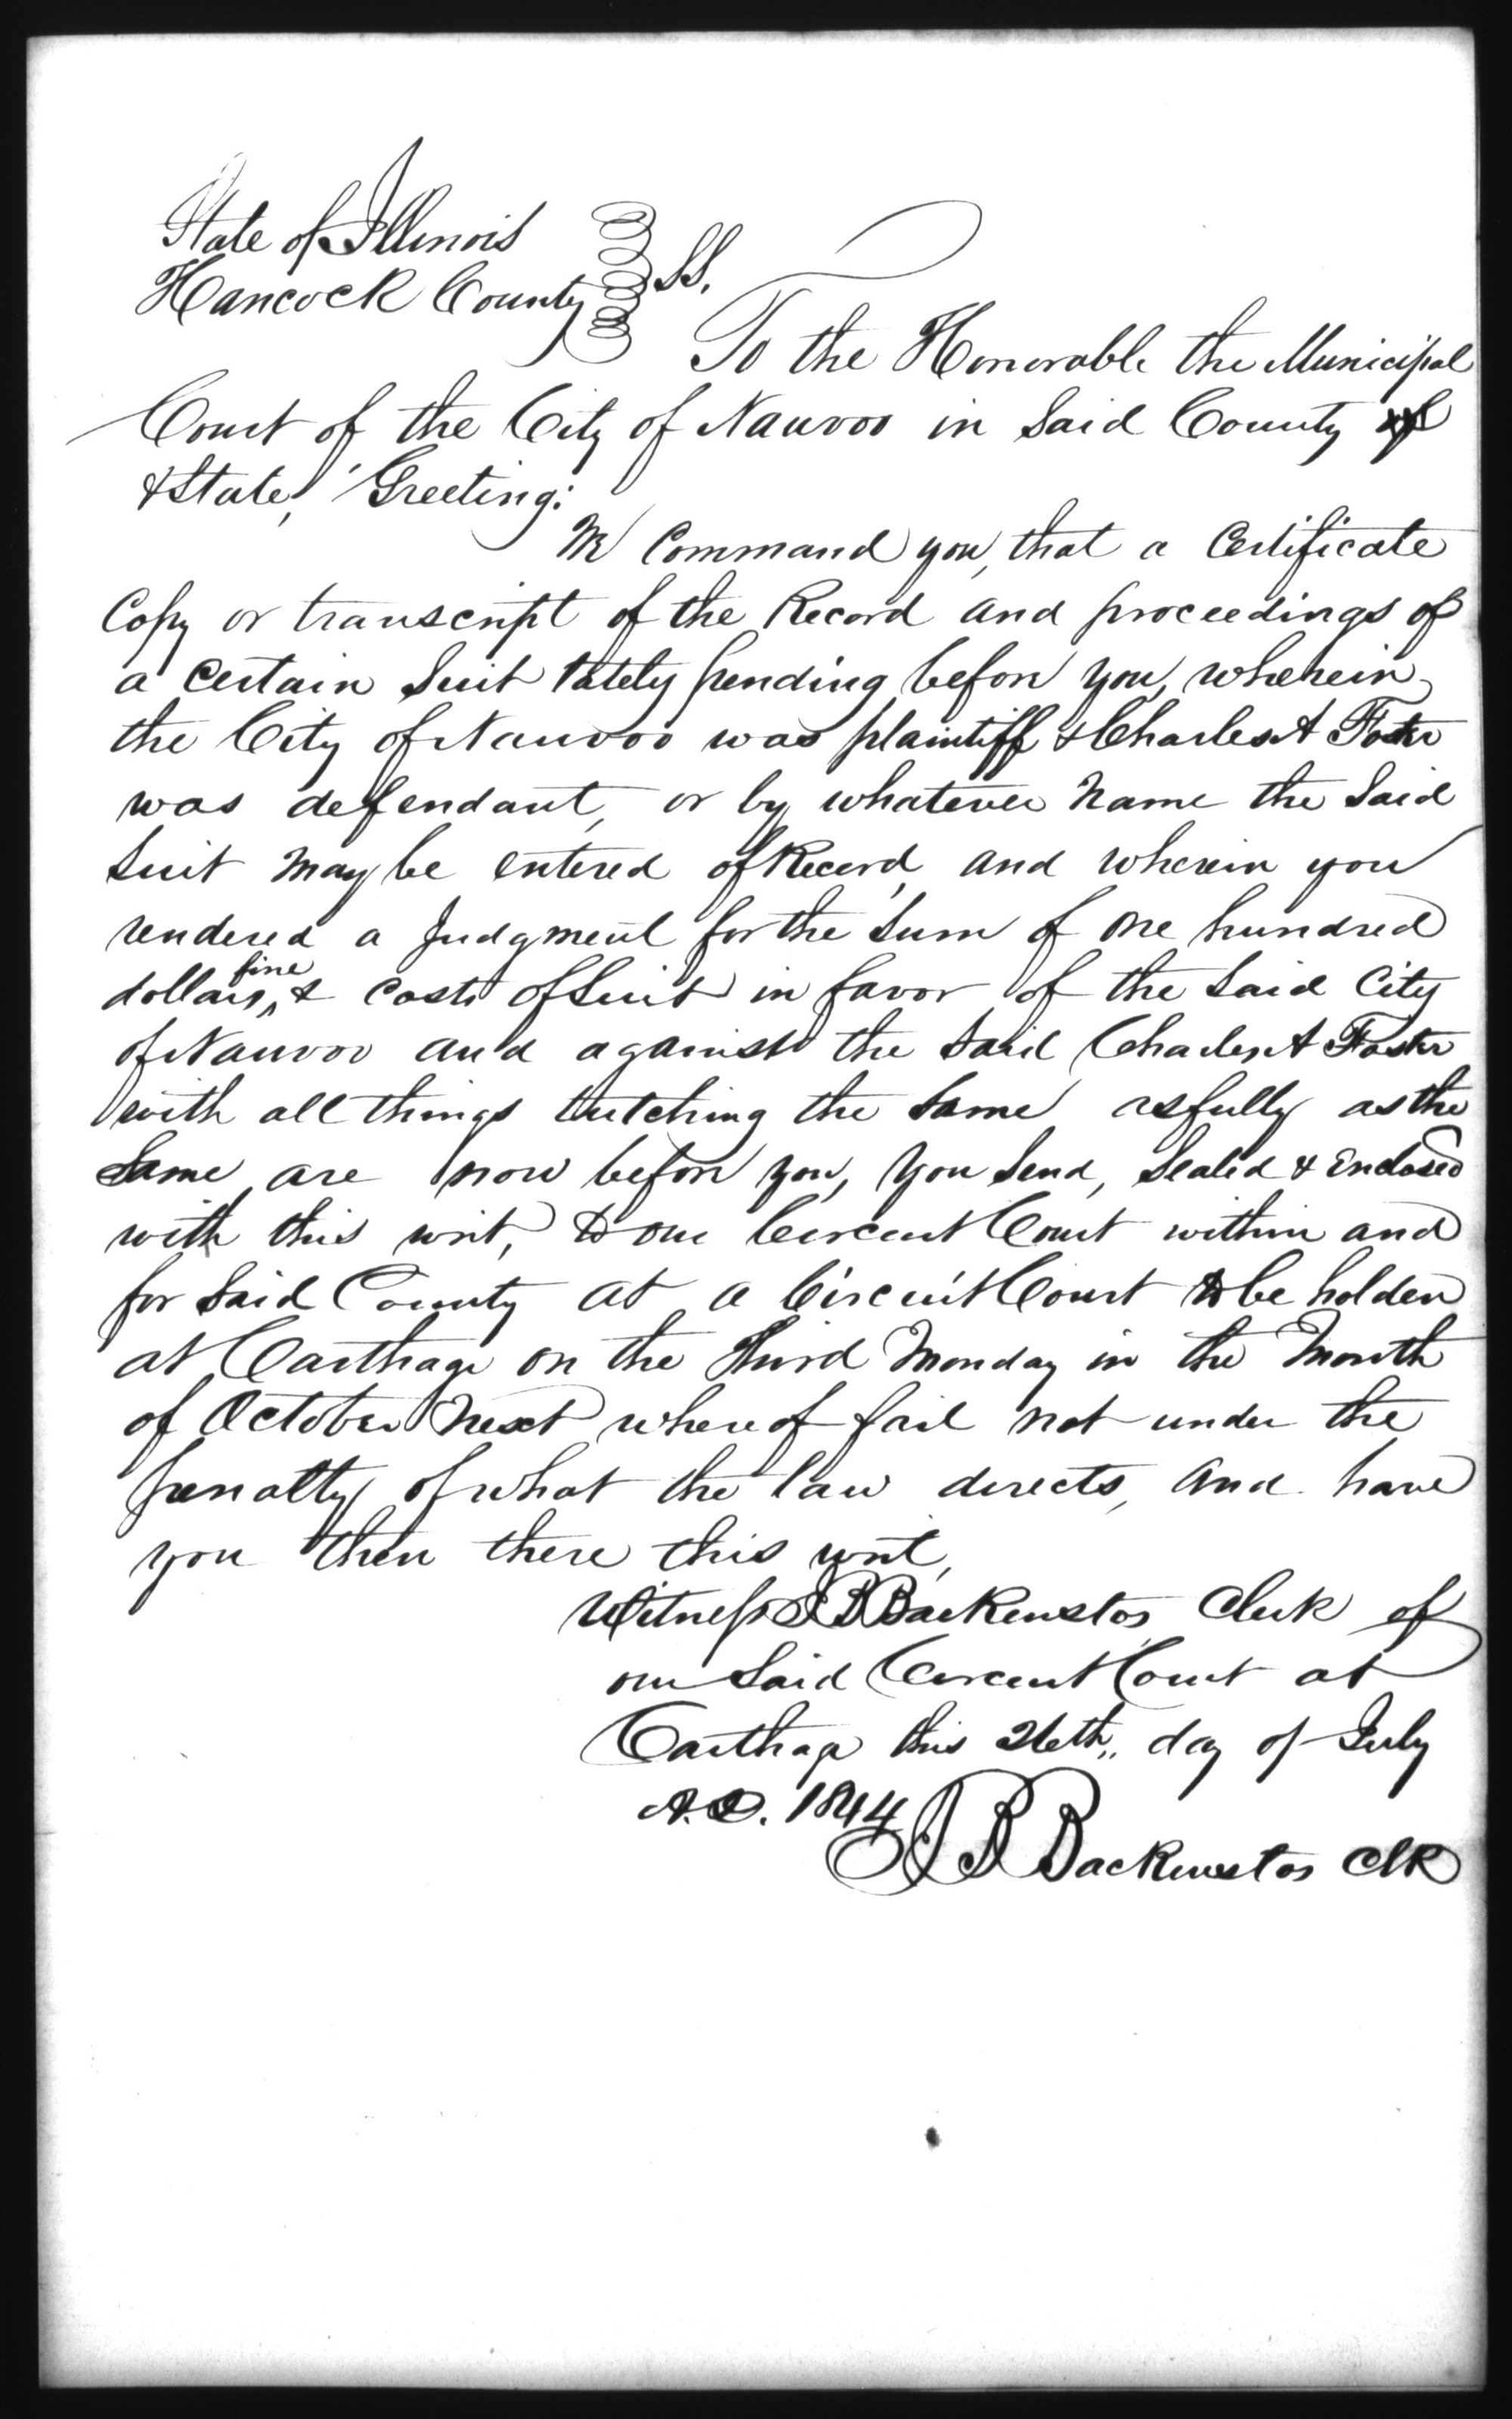 State of Illinois
Hancock County ss.
To the Honorable the Municipal
Court of the City of Nauvoo in Said County of
& State, Greeting:
We Command you, that a Certificate
Copy or transcript of the Record and proceedings of
a certain Suit lately pending before you, wherein
the City of Nauvoo was plaintiff & Charles A Foster
was defendant, or by whatever Name the Said
Suit may be entered of Record, and wherein you
rendered a Judgment for the Sum of One hundred
dollars, fine & Costs of Suit in favor of the Said City
of Nauvoo and against the Said Charles A Foster
with all things tutching the Same as fully as the
Same are now before you, you Send, Sealed & Enclosed
with this writ, to our Circuit Court within and
for Said County at a Circuit Court to be holden
at Carthage on the third Monday in the Month
of October Next whereof fail not under the
penalty of what the law directs, and have
you then there this writ,
Witness J B Backenstos Clerk of
our Said Circuit Court at
Carthage this 26th,, day of July
A.D. 1844
J B Backenstos Clk